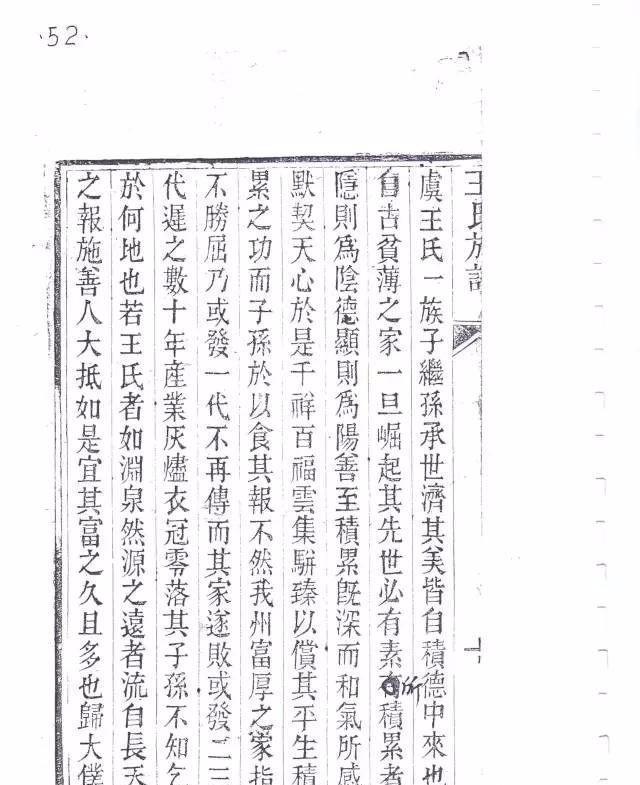 ·52·
王氏族譜
虞王氏一族子繼孫承世濟其美皆自積德中來也
自古貧薄之家一旦崛起其先世必有素所積累者
隱則爲陰德顯則爲陽善至積累旣深而和氣所感
默契天心於是千祥百福雲集駢臻以償其平生積
累之功而子孫於以食其報不然我州富厚之家指
不勝屈乃或發一代不再傳而其家遂敗或發二三
代遲之數十年産業灰燼衣冠零落其子孫不知乞
於何地也若王氏者如淵泉然源之遠者流自長天
之報施善人大抵如是宜其富之久且多也歸大僕